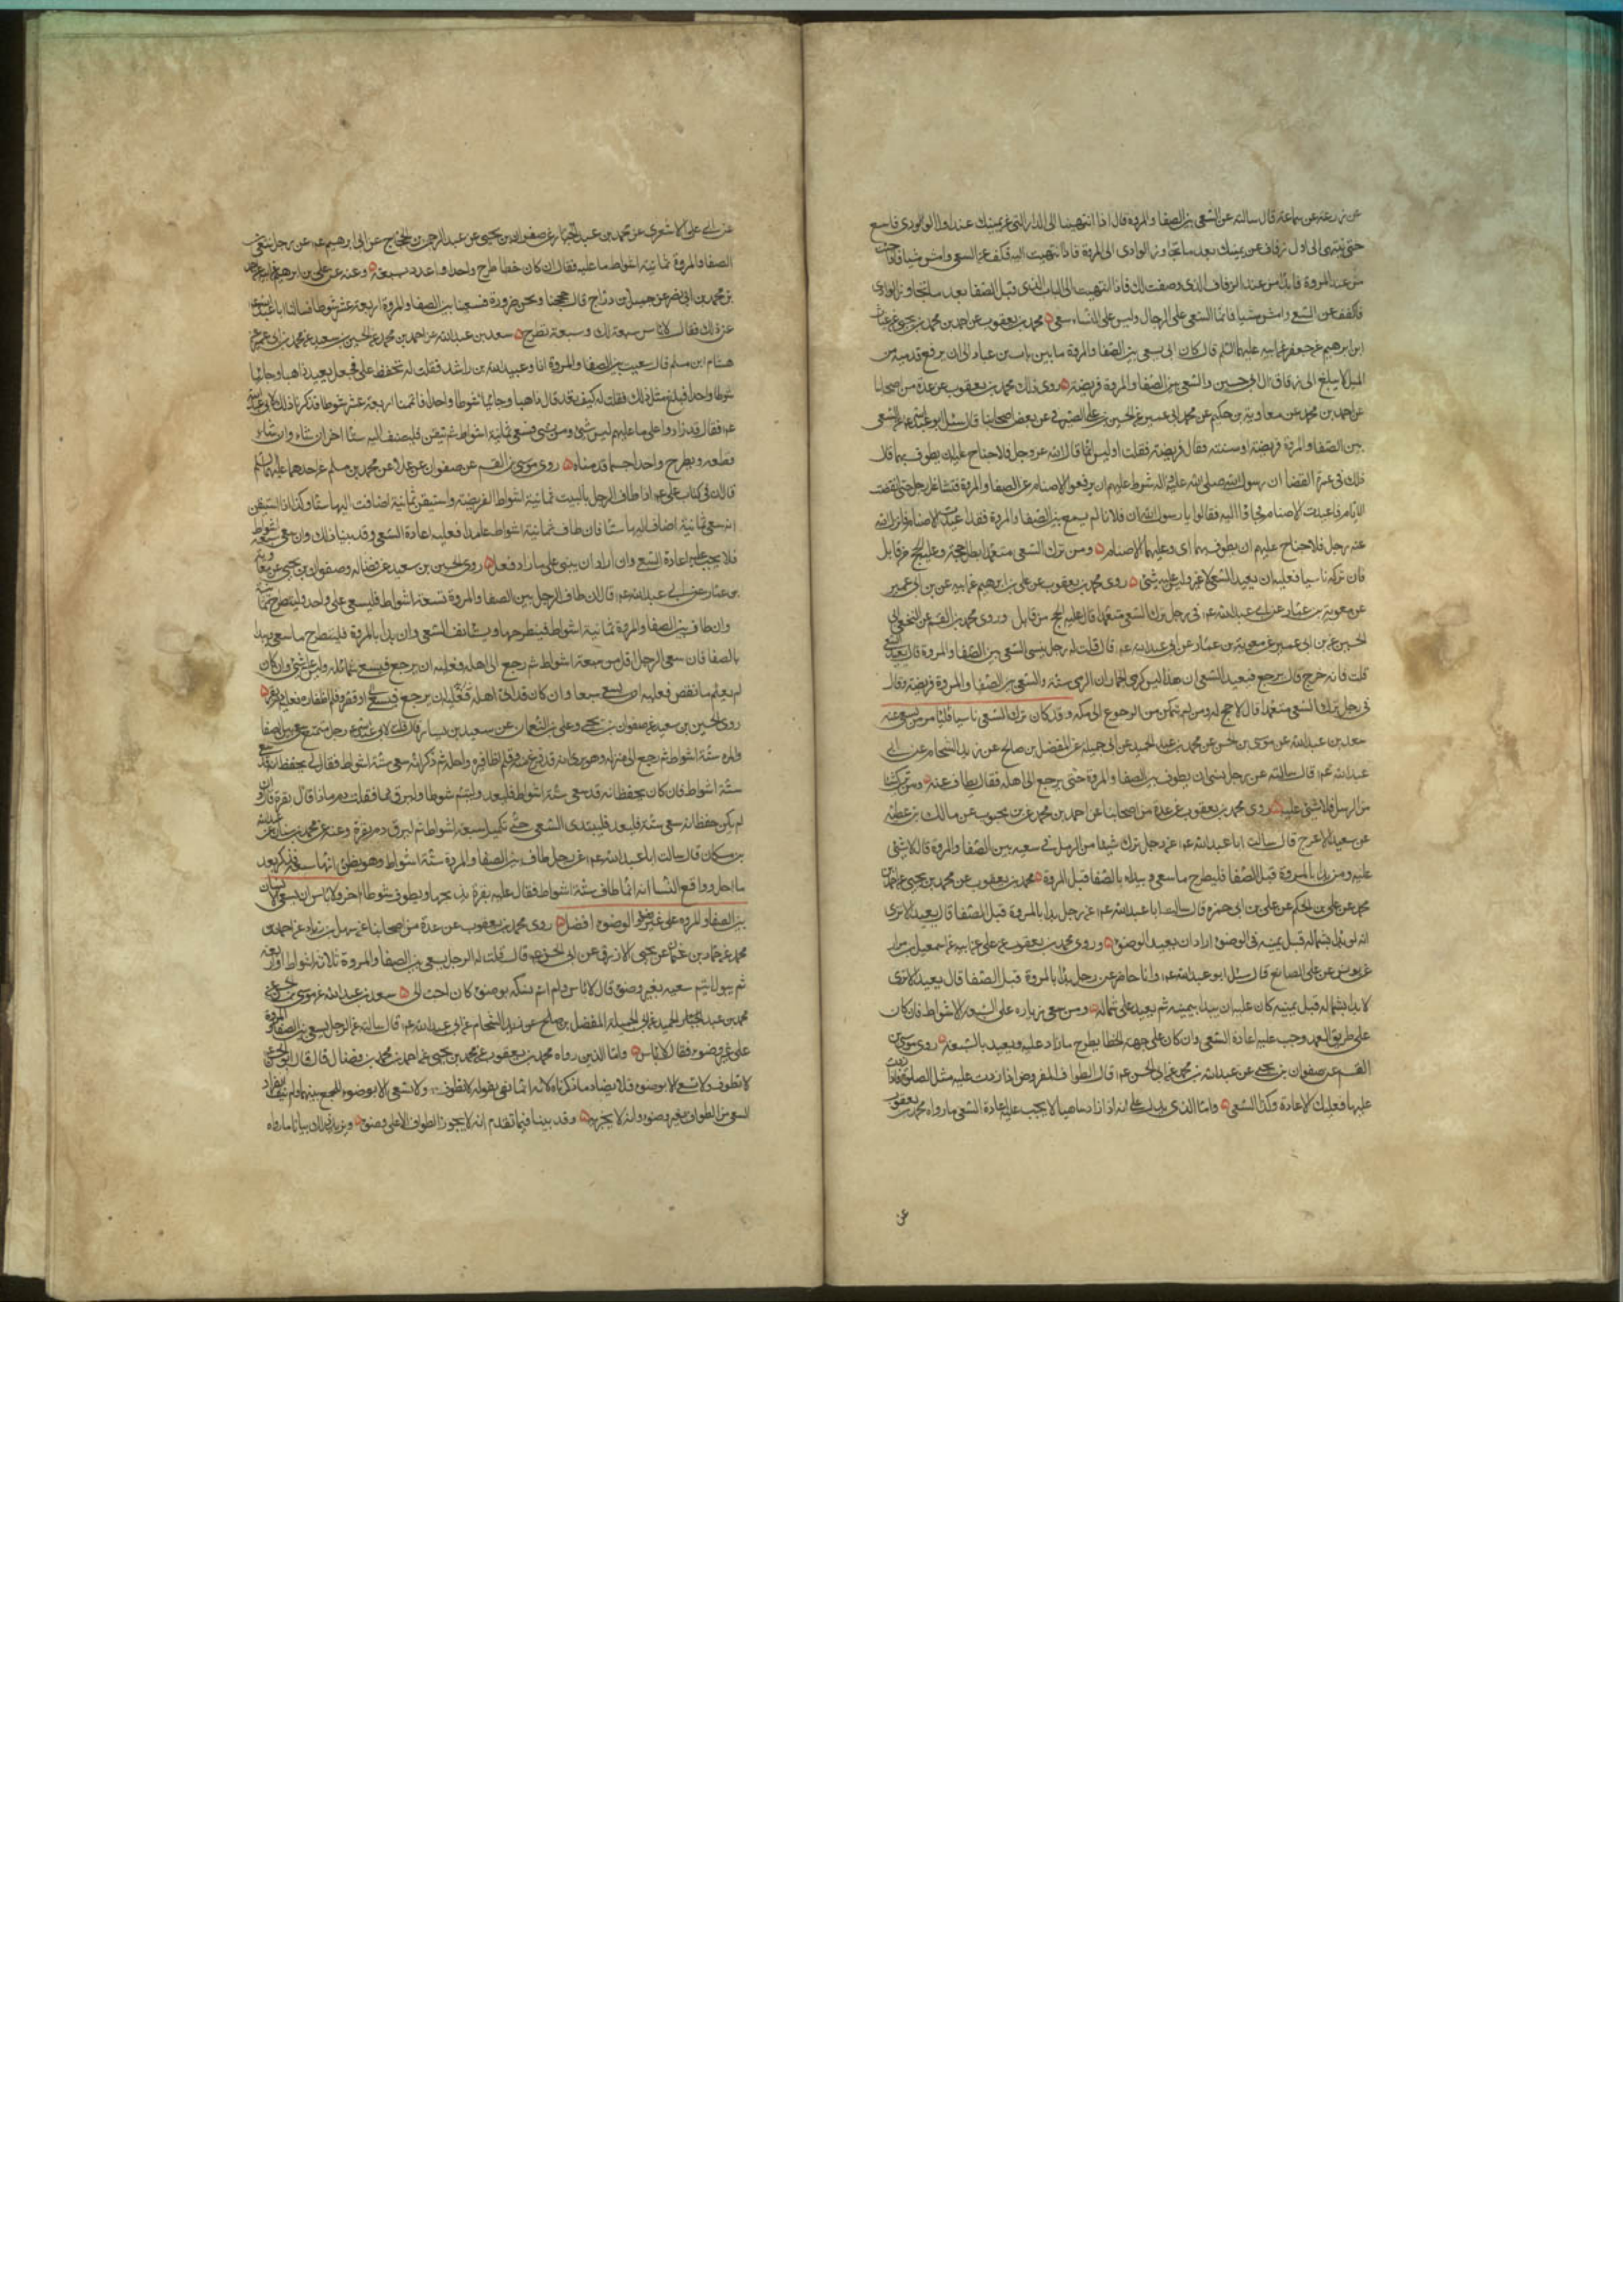 عن زرعة عن سماعة قال سالته عن السعي بين الصفا والمروة قال اذا انتهيت الى الدار التي عن يمينك عند اول الوادي فاسع
حتى تنتهي الى اول زقاق عن يمينك بعد ما تجاوز الوادي الى المروة فاذا انتهيت اليه فكف عن السعي وامش مشيا فاذا جئت
من عند المروة فابدأ من عند الزقاق الذي وصفت لك فاذا انتهيت الى الباب الذي قبل الصفا بعد ما تتجاوز الوادي
فاكفف عن السعي وامش مشيا فانما السعي على الرجال وليس على النساء سعي محمد بن يعقوب عن احمد بن محمد بن يحيى عن غياث
ابن ابرهيم عن جعفر عن ابيه عليهما السلم قال كان ابي يسعى بين الصفا والمروة ما بين باب بن عباد الى ان يرفع قدميه من
الميل لا يبلغ الى زقاق آل ابي حسين والسعي بين الصفا والمروة فريضة روى ذلك محمد بن يعقوب عن عدة من اصحابنا
عن احمد بن محمد عن معاوية بن حكيم عن محمد بن ابي عمير عن الحسن بن علي الصيرفي عن بعض اصحابنا قال سئل ابو عبد الله عن السعي
بين الصفا والمروة فريضة او سنة فقال فريضة فقلت اوليس انما قال الله عز وجل فلا جناح عليك يطوف بهما قال
ذلك في عمرة القضا ان رسول الله صلى الله عليه واله شرط عليهم ان يرفعوا الاصنام عن الصفا والمروة فتشاغل رجل حتى انقضت
الايام فاعيدت الاصنام فجاؤا اليه فقالوا يا رسول الله ان فلانا لم يسع بين الصفا والمروة وقد اعيدت الاصنام فانزل الله
عز وجل فلا جناح عليهم ان يطوف بهما اى وعليهما الاصنام ومن ترك السعي متعمدا بطل حجه وعليه الحج من قابل
فان تركه ناسيا فعليه ان يعيد السعي لا غير وليس عليه شئ روى محمد بن يعقوب عن علي بن ابرهيم عن ابيه عن بن ابي عمير
عن معوية بن عمار عن ابي عبد الله عم في رجل ترك السعي متعمدا قال عليه الحج من قابل وروى محمد بن القسم عن النخعي ابي
الحسين عن بن ابي عمير عن معوية بن عمار عن ابي عبد الله عم قال قلت له رجل نسي السعي بين الصفا والمروة قال يعيد السعي
قلت فانه خرج قال يرجع فيعيد السعي ان هذا ليس كرمي الجمار ان الرمي سنة والسعي بين الصفا والمروة فريضة وقال
في رجل ترك السعي متعمدا قال لا حج له ومن لم يتمكن من الرجوع الى مكة وقد كان ترك السعي ناسيا فليأمر من يسعى عنه
سعد بن عبد الله عن موسى بن الحسن عن محمد بن عبد الحميد عن ابي جميله عن المفضل بن صالح عن زيد الشحام عن ابي
عبد الله عم قال سالته عن رجل نسي ان يطوف بين الصفا والمروة حتى يرجع الى اهله فقال يطاف عنه ومن ترك شيئا
من الرمل فلا شئ عليه روى محمد بن يعقوب عن عدة من اصحابنا عن احمد بن محمد عن بن محبوب عن مالك بن عطية
عن سعيد الاعرج قال سالت ابا عبد الله عم عن رجل ترك شيئا من الرمل في سعيه بين الصفا والمروة قال لا شئ
عليه ومن بدأ بالمروة قبل الصفا فليطرح ما سعى ويبدأ بالصفا قبل المروة محمد بن يعقوب عن محمد بن يحيى عن احمد بن
محمد عن علي بن الحكم عن علي بن ابي حمزه قال سالت ابا عبد الله عم عن رجل بدأ بالمروة قبل الصفا قال يعيد الا ترى
انه لو بدأ بشماله قبل يمينه في الوضوء اراد ان يعيد الوضوء وروى محمد بن يعقوب عن علي عن ابيه عن اسمعيل بن مرار
عن يونس عن علي الصائغ قال سئل ابو عبد الله عم وانا حاضر عن رجل بدأ بالمروة قبل الصفا قال يعيد الا ترى
لا بدأ بشماله قبل يمينه كان عليه ان يبدأ بيمينه ثم يعيد على شماله ومن سعى زيادة على السبعة الاشواط فان كان
على طريق العمد وجب عليه اعادة السعي وان كان على جهة الخطا يطرح ما زاد عليه ويعيد بالسبعة روى موسى بن
القسم عن صفوان بن يحيى عن عبد الله بن محمد عن ابي الحسن عم قال الطواف المفروض اذا زدت عليه مثل الصلوة فاذا زدت
عليها فعليك الاعادة وكذا السعي واما الذي يدل على انه اذا زاد ساهيا لا يجب عليه اعادة السعي ما رواه محمد بن يعقوب
عن
عن ابي علي الاشعري عن محمد بن عبد الجبار عن صفوان بن يحيى عن عبد الرحمن بن الحجاج عن ابي ابرهيم عم عن رجل سعى بين
الصفا والمروة ثمانية اشواط ما عليه فقال ان كان خطا طرح واحدا واعتد بسبعة وعنه عن علي بن ابرهيم عن ابيه عن احمد
بن محمد بن ابي نصر عن جميل بن دراج قال حججنا ونحن صرورة فسعينا بين الصفا والمروة اربعة عشر شوطا فسالنا ابا عبد الله
عن ذلك فقال لا باس سبعة لك وسبعة تطرح سعد بن عبد الله عن احمد بن محمد عن الحسين بن سعيد عن محمد بن ابي عمير عن
هشام ابن سلم قال سعيت بين الصفا والمروة انا وعبيد الله بن راشد فقلت له تحفظ علي فجعل يعد ذاهبا وجائيا
شوطا واحدا فبلغ مثل ذلك فقلت له كيف تعد قال ذاهبا وجائيا شوطا واحدا فاتممنا اربعة عشر شوطا فذكرنا ذلك لابي عبد الله
عم فقال قد زادوا على ما عليهم ليس شئ ومن سعى ثمانية اشواط ثم تيقن فليضف اليه ستا اخر ان شاء وان شاء
قطعه ويطرح واحدا حسبما قدمناه روى موسى بن القسم عن صفوان عن علا عن محمد بن مسلم عن احدهما عليهما السلم
قال ان في كتاب علي عم اذا طاف الرجل بالبيت ثمانية اشواط الفريضة واستيقن ثمانية اضاف اليها ستا وكذا اذا استيقن
انه سعى ثمانية اضاف اليها ستا فان طاف ثمانية اشواط عامدا فعليه اعادة السعي وقد بينا ذلك وان سعى تسعة اشواط
فلا يجب عليه اعادة السعي وان اراد ان يبني على ما زاد فعل روى الحسين بن سعيد عن فضاله وصفوان بن يحيى عن معوية
بن عمار عن ابي عبد الله عم قال ان طاف الرجل بين الصفا والمروة تسعة اشواط فليسعى على واحد وليطرح ثمانية
وان طاف بين الصفا والمروة ثمانية اشواط فليطرحها ويستانف السعي وان بدأ بالمروة فليطرح ما سعى ويبدأ
بالصفا فان سعى الرجل اقل من سبعة اشواط ثم رجع الى اهله فعليه ان يرجع فيسعى تمامه وليس عليه شئ وان كان
لم يعلم ما نقص فعليه ان يسعى سبعا وان كان قد اتى اهله او قصر وقلم اظفاره فعليه دم بقرة
روى الحسين بن سعيد عن صفوان بن يحيى وعلي بن النعمان عن سعيد بن يسار قال قلت لابي عبد الله رجل متمتع سعى بين الصفا
والمروه ستة اشواط ثم رجع الى منزله وهو يرى انه قد فرغ منه وقلم اظافيره واحل ثم ذكر انه سعى ستة اشواط فقال لي يحفظ انه قد سعى
ستة اشواط فان كان يحفظ انه قد سعى ستة اشواط فليعد وليتم شوطا وليرق دما فقلت دم ماذا قال بقرة قال وان
لم يكن حفظ انه سعى ستة فليعد فليبتدئ السعي حتى تكمل سبعة اشواط ثم ليرق دم بقرة وعنه عن محمد بن سنان عن عبد الله
بن مسكان قال سالت ابا عبد الله عم عن رجل طاف بين الصفا والمروة ستة اشواط وهو يظن انها سبعة فذكر بعد
ما احل وواقع النسا انه انما طاف ستة اشواط فقال عليه بقرة يذبحها ويطوف شوطا اخر ولا باس ان يسعى الانسان
بين الصفا والمروه على غير وضوء والوضوء افضل روى محمد بن يعقوب عن عدة من اصحابنا عن سهل بن زياد عن احمد بن
محمد عن حماد بن عثمان عن يحيى الازرق عن ابي الحسن عم قال قلت له الرجل يسعى بين الصفا والمروة ثلاثة اشواط او اربعة
ثم يبول ايتم سعيه بغير وضوء قال لا باس ولو اتم نسكه بوضوء كان احب الى سعد بن عبد الله عن موسى بن الحسن عن
محمد بن عبد الحميد عن ابي جميلة المفضل بن صالح عن زيد الشحام عن ابي عبد الله عم قال سالته عن الرجل يسعى بين الصفا والمروة
على غير وضوء فقال لا باس واما الذي رواه محمد بن يعقوب عن محمد بن يحيى عن احمد بن محمد عن بن فضال قال قال ابو الحسن عم
لا تطوف ولا تسعى الا بوضوء فلا يضاد ما ذكرناه لانه انما نهى بقوله لا تطوف ولا تسعى الا بوضوء للجمع بينهما ولم ينف انفراد
السعي من الطواف بغير وضوء وانه لا يجزيه وقد بينا فيما تقدم انه لا يجوز الطواف الا على وضوء ويزيد ذلك بيانا ما رواه